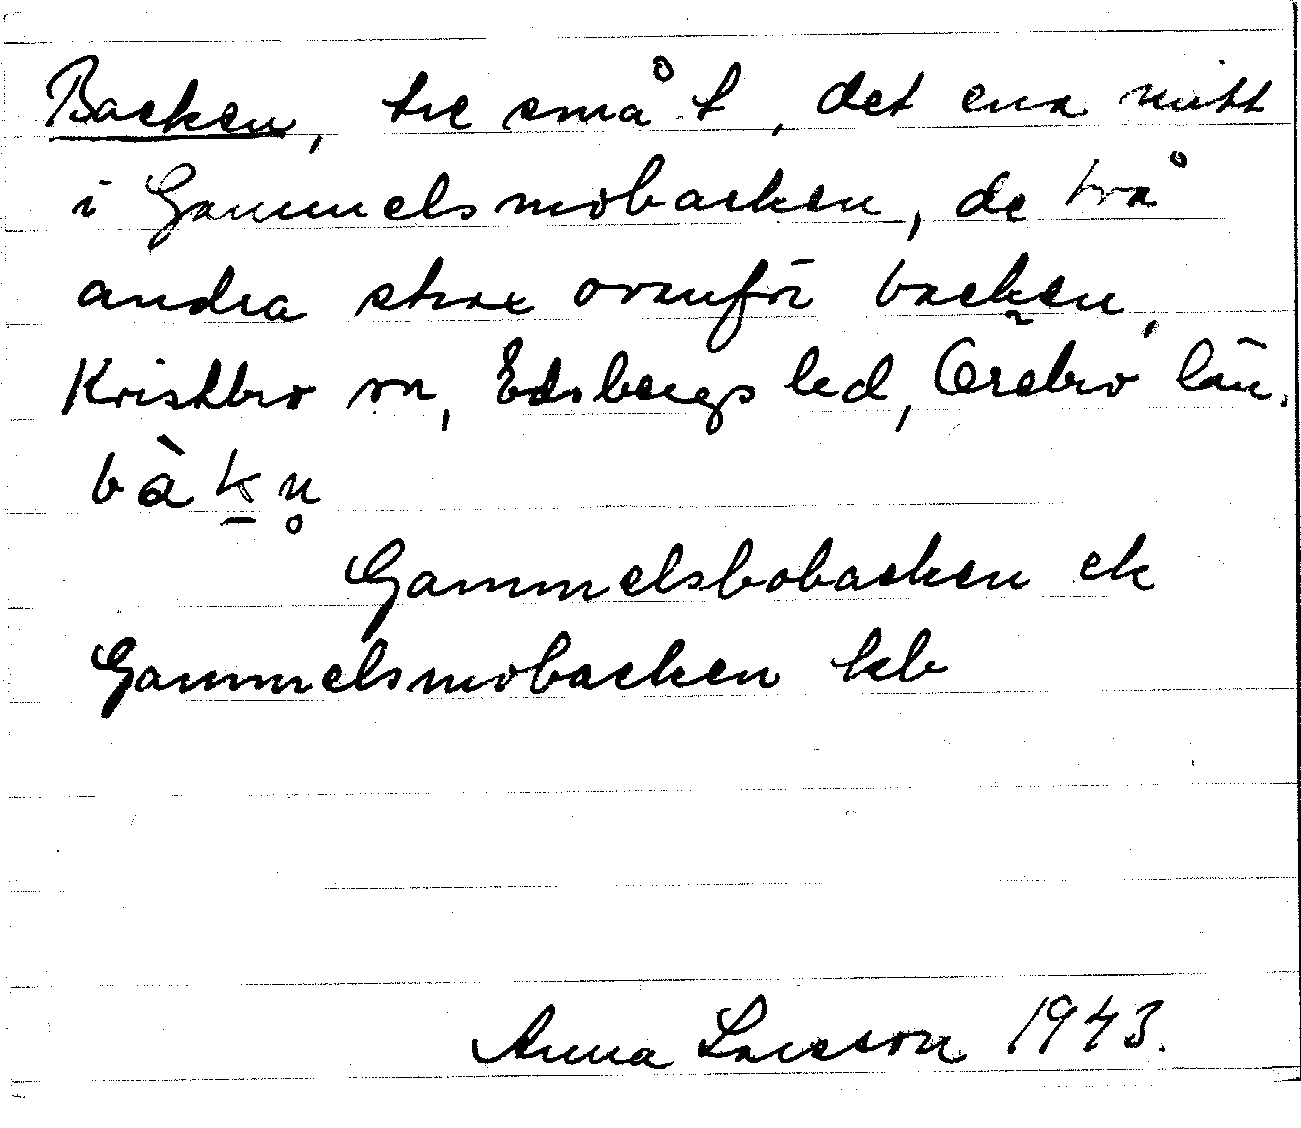 Backen, tre små t, det ena mitt
i Gammelsmobacken, de två
andra strax ovanför backen,
Kvistbro sn, Edsbergs hd, Örebro län.
bàk̠n̥
Gammelsbobacken ek
Gammelsmobacken kb
Anna Larsson 1943.